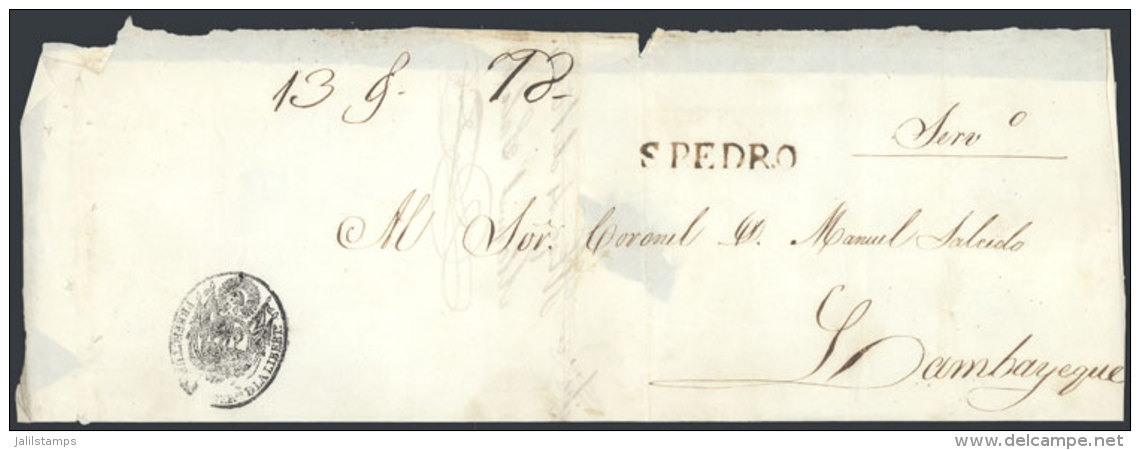 13
Serv°
S PEDRO
Al Sor. Coronel D. Manuel Salcedo
Lambayeque
DLALIBERT
Jalilstamps
delcampe.net